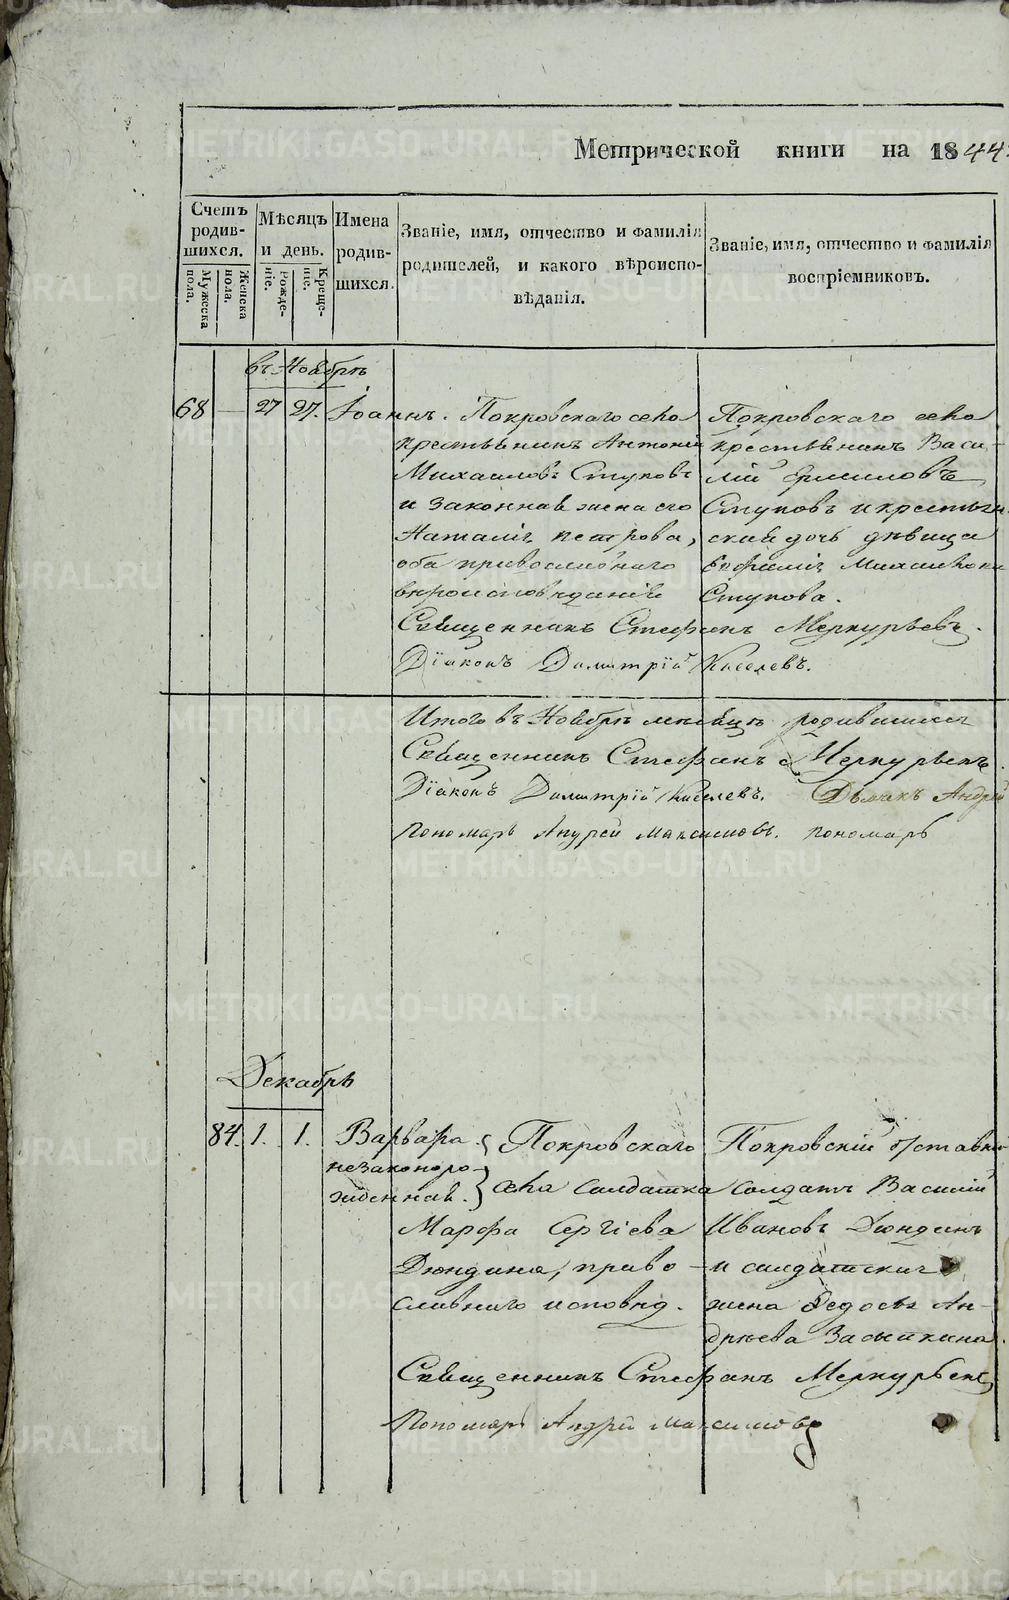 Метрической книги на 1844
Счетъ родившихся.
Мужеска пола.
Женска пола.
Мѣсяцъ и день.
Рожденіе.
Крещеніе.
Имена родившихся.
Званіе, имя, отчество и фамилія
родителей, и какого вѣроиспо-
вѣданія.
Званіе, имя, отчество и фамилія
воспріемниковъ.
въ Ноябрѣ
68 — 27 27. Іоаннъ.
Покровскаго села
крестьянинъ Антоній
Михаиловъ Стуковъ
и законная жена его
Наталія Петрова,
оба православнаго
вѣроисповѣданія
Покровскаго села
крестьянинъ Васи-
лій Ермиловъ
Стуковъ и крестьян
ская дочь дѣвица
Евфимія Михаилова
Стукова.
Священникъ Стефанъ Меркурьевъ.
Діаконъ Димитрій Киселевъ.
Итого въ Ноябрѣ месяцѣ родившихся
Священникъ Стефанъ Меркурьевъ.
Діаконъ Димитрій Киселевъ. Дьячекъ Андрей
Пономарь Андрей Максимовъ. пономарь
Декабрь
84. 1. 1. Варвара
незаконоро-
жденная.
Покровскаго
села солдатка
Марфа Сергіева
Дюндина, право-
славнаго исповѣд.
Покровскій отставной
солдатъ Василій
Ивановъ Дюндинъ
и солдатская
жена Федосья Ан-
дрѣева Засыпкина.
Священникъ Стефанъ Меркурьевъ
Пономарь Андрей Максимовъ
METRIKI.GASO-URAL.RU